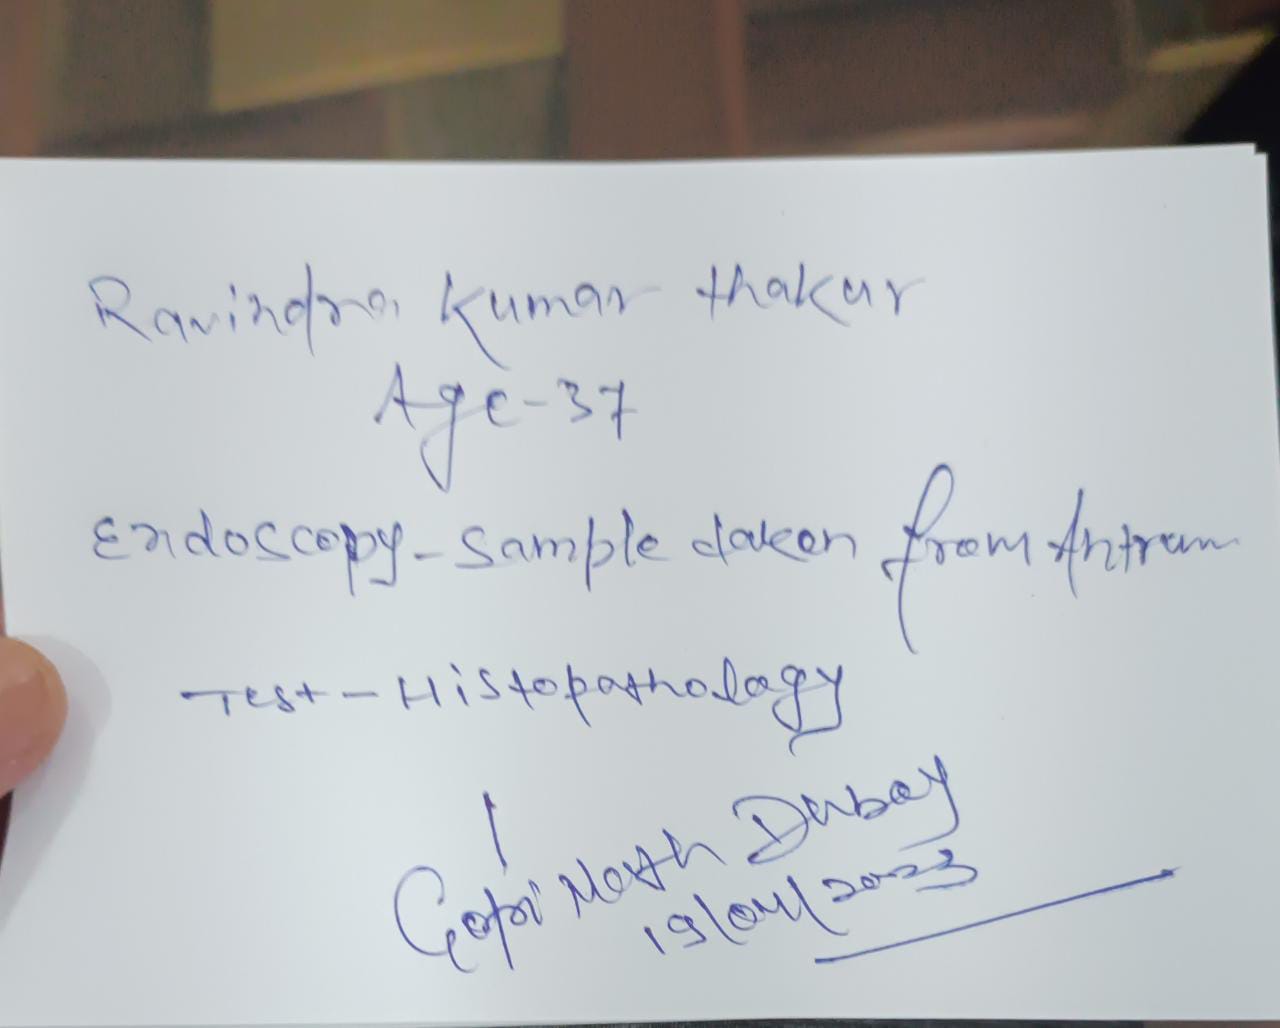 Ravindra Kumar thakur
Age-37
Endoscopy-Sample taken from Antrum
Test-Histopathology
Gopi Nath Dubay
19/04/2023